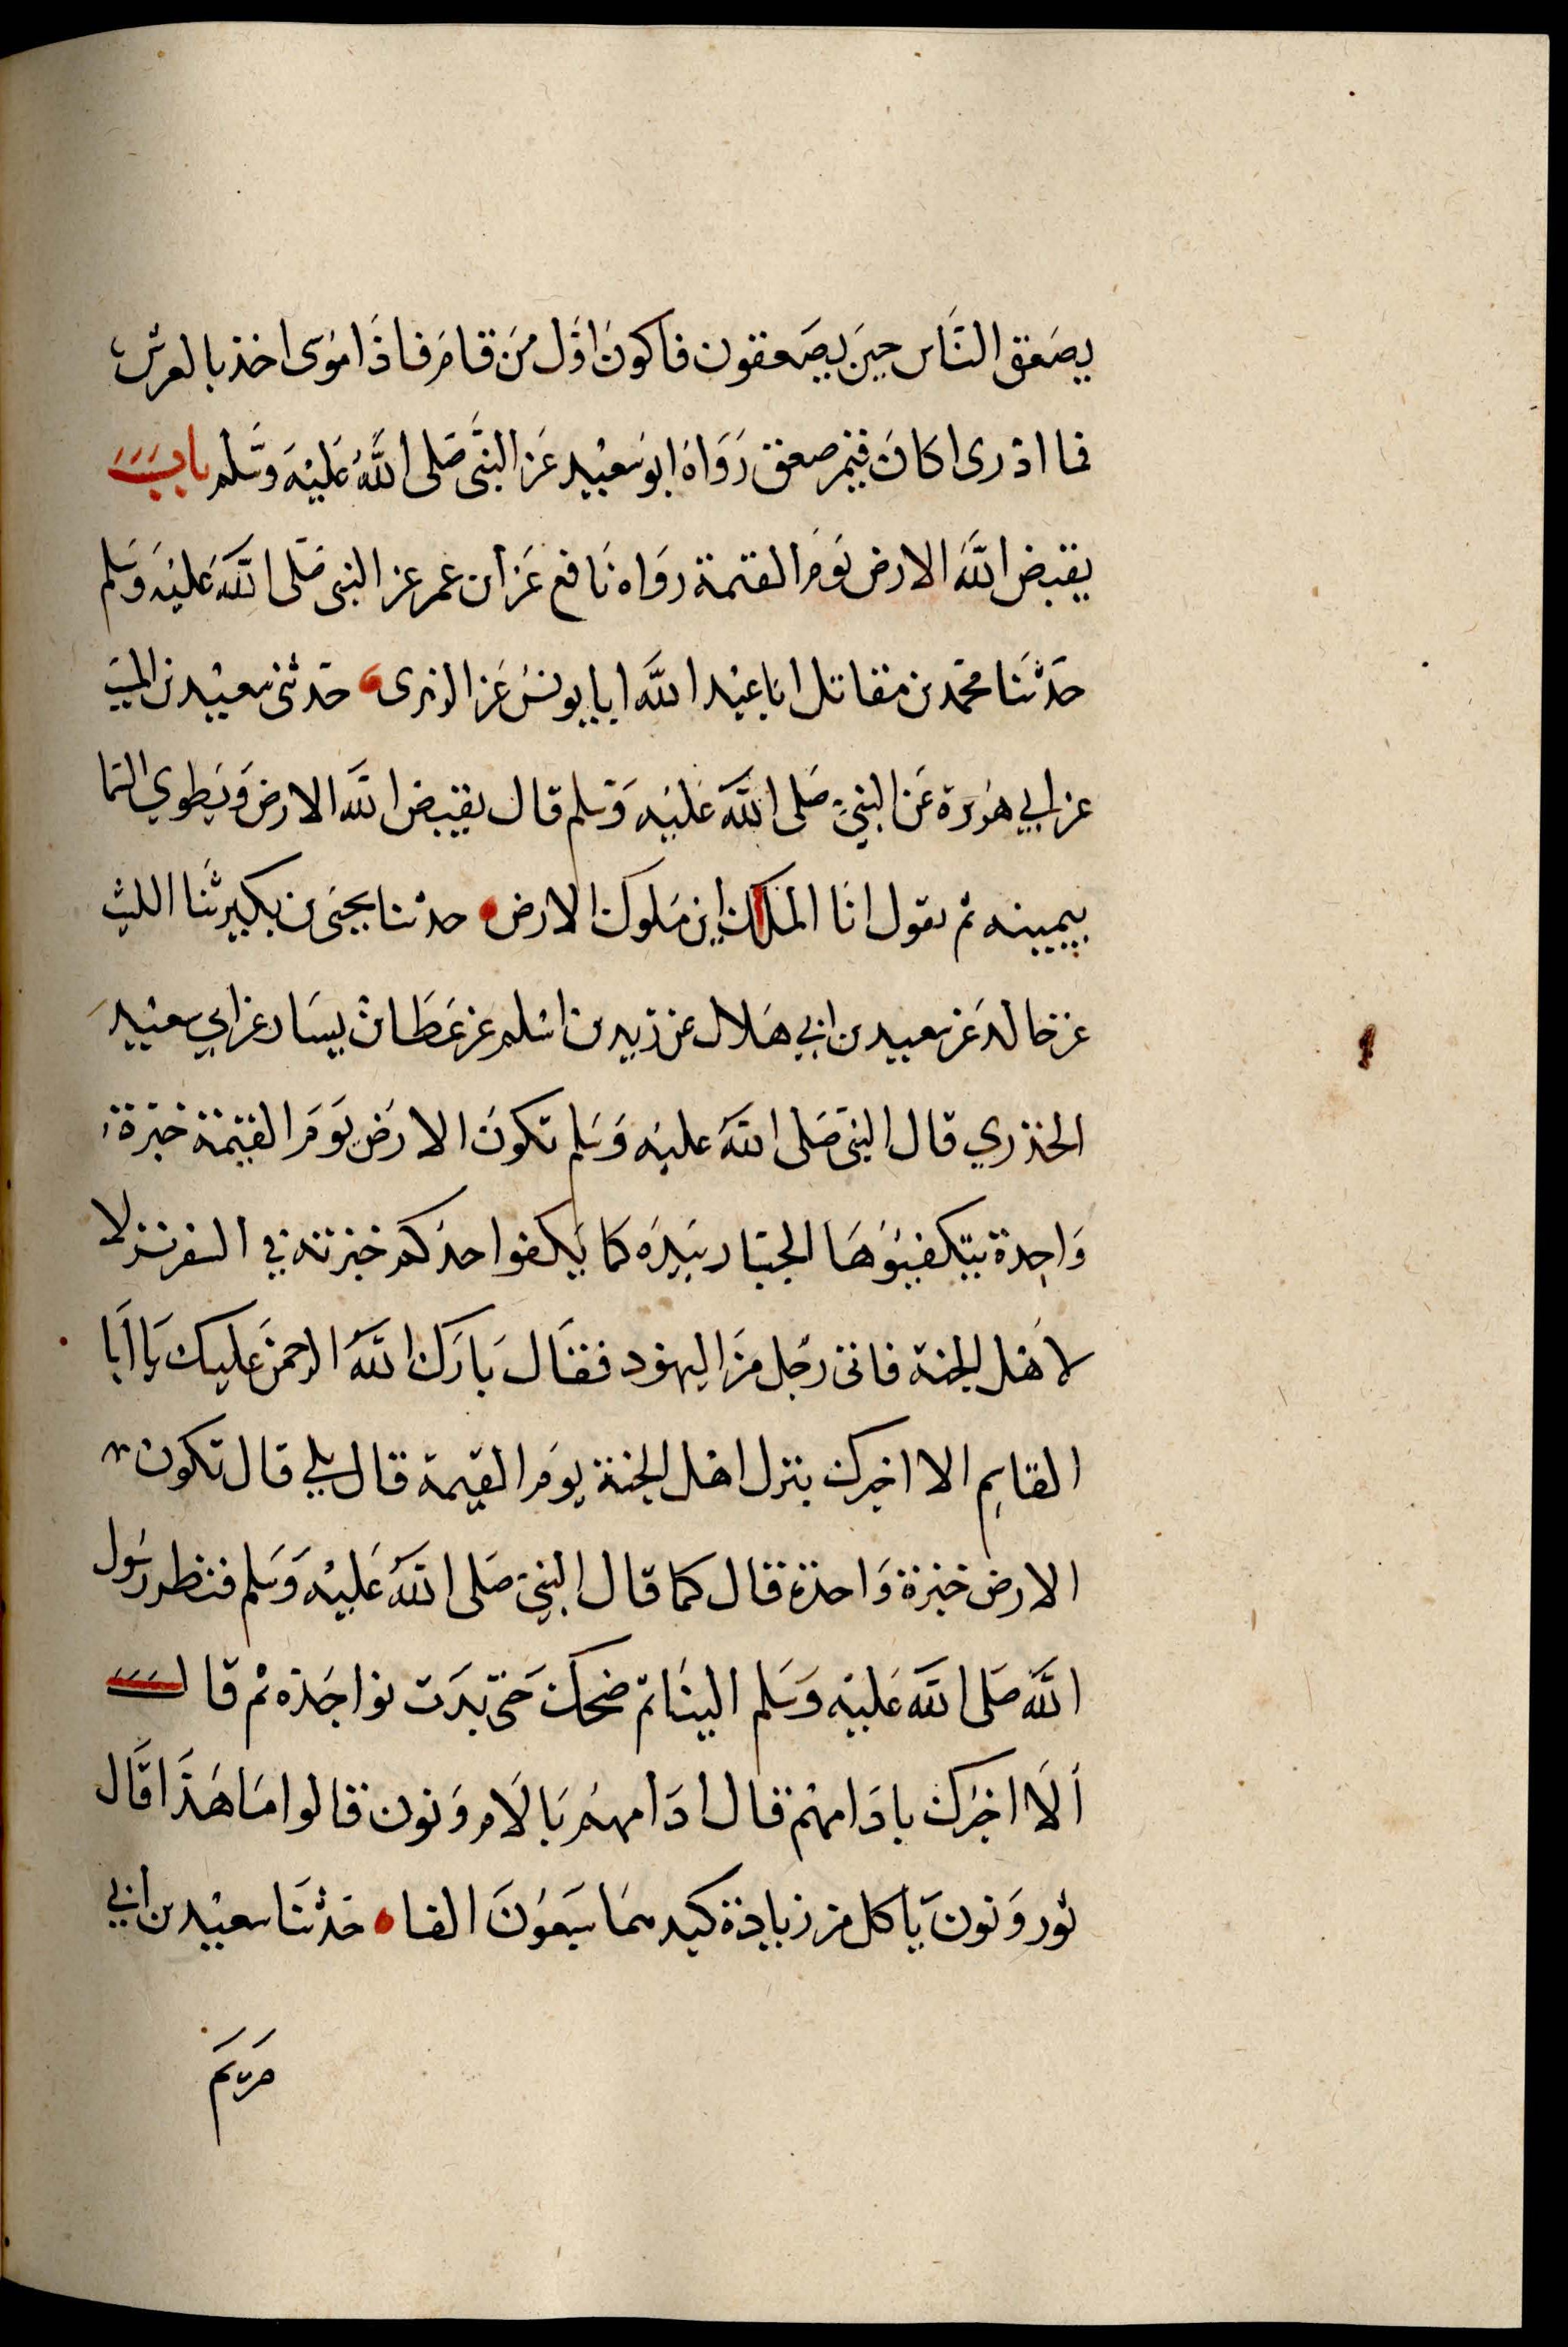 يصعق النَّاس حينَ يصَعقون فاكونَ اوَّل منَ قامَ فاذَا موسَى اخذ بالعرش
فما ادْرى اكانَ فيمن صعق رَوَاهُ ابو سَعيْد عَن النَّبى صَلى اللَّهُ عَليْهِ وَسَّلم باب
يقبض اللَّه الارض يَومَ القيمة روَاه نَافع عَن ابن عمر عن النبى صَلى اللَّهَ عَليْه وَسَلم
حَدثنَا محمَّد بن مقاتل انا عبْد اللَّه انا يونسُ عَن الزهرى حَدثنى سعيْد بن المسيَب
عن ابي هُريرة عَن النبيَّ صَلى اللَّهَ عَليْه وَسَلم قال يقبض اللَّه الارض وَيَطوي السَما
بيمينه ثم يقول انَا المَلك اين مَلوك الارض حدثنا يحيَى بن بكير ثنَا الليث
عن خالد عَن سعيد بن ابي هَلال عن زيد بن اسْلم عن عَطَا بنْ يسَار عن ابي سعيْد
الخدري قال النبىَ صَلى اللَّهَ عليْه وَسَلم تكونُ الارضَ يَومَ القيمة خبَزة
وَاحِدة يتكفيؤُهَا الجبَار بيَدَه كمَا يَكفوا احدكُم خبزته في السفر نزلا
لاهَل الجنة فاتى رجُل منَ اليهوُد فقَال بَارَك اللَّهُ الرحمنَ عليك يَا ابَا
القاسِم الا اخبرك بنزل اهْل الجنة يومَ القيمة قال بلي قال تكون
الارض خبزة وَاحدة قال كما قال النبيَ صَلى اللَّهَ عَليْه وَسَلم فنظر رسُول
اللَّه صَلى اللَّهَ عَليْه وَسَلم الينَا ثم ضحك حَتى بدَت نواجَذه ثم قال
ألَا اخبُرك بادَامهْم قال ادَامهمُ بَالَام وَنون قالوا مَا هَذَا قَال
ثور وَنونَ يَاكل من زيادة كبدهمَا سَبعوُنَ الفا حَدثنَا سعيْد بن ابي
مَريَم